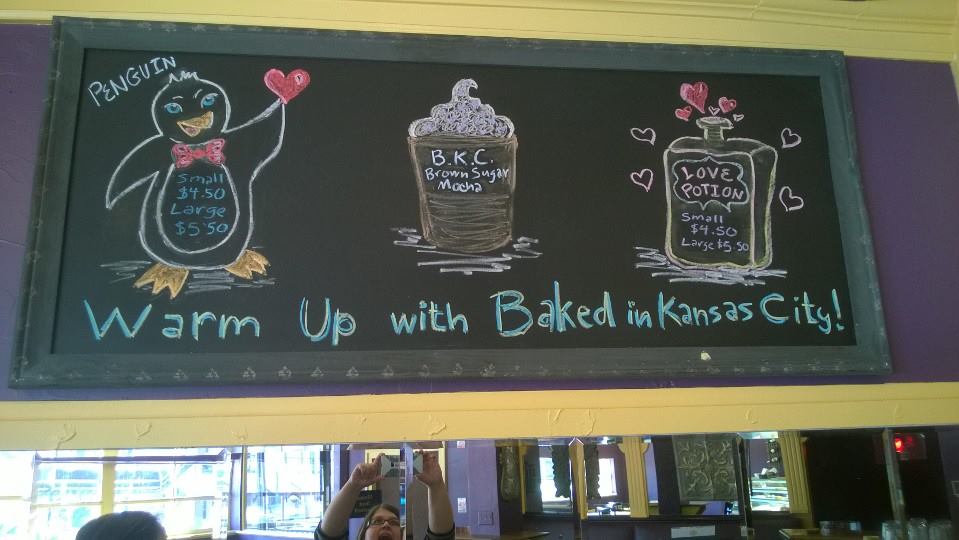 PENGUIN
Small
$4.50
Large
$5.50
B.K.C.
Brown Sugar
Mocha
LOVE
POTION
Small
$4.50
Large $5.50
Warm Up with Baked in Kansas City!